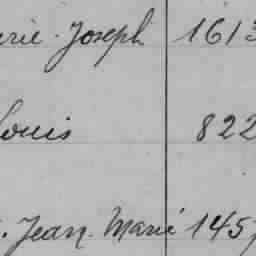 rie. Joseph 1613
Louis 822
. Jean. Marie 1457